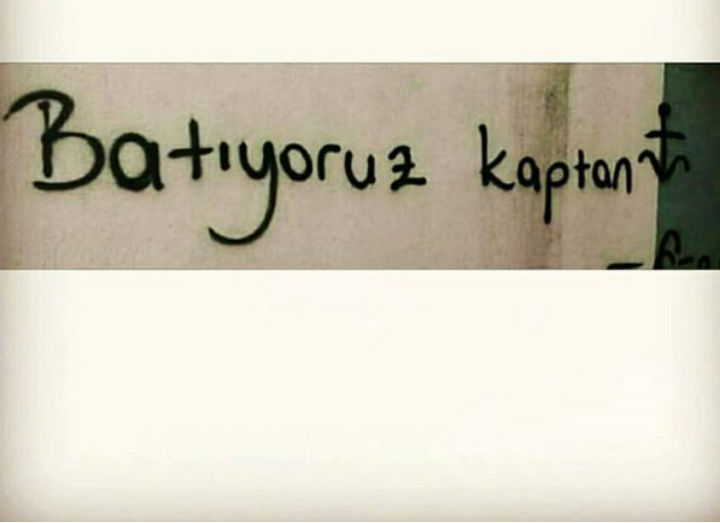 Batıyoruz kaptan